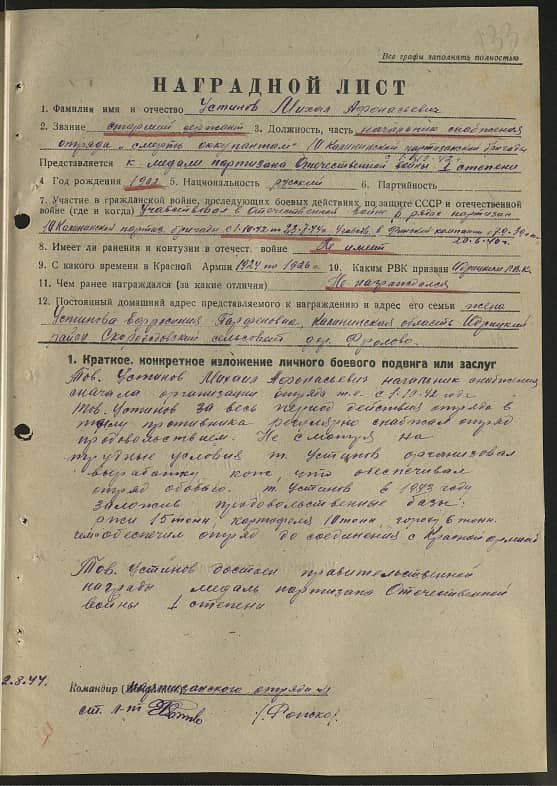 133
Все графы заполнять полностью
НАГРАДНОЙ ЛИСТ
1. Фамилия имя и отчество Устинов Михаил Афонасьевич
2. Звание старший сержант 3. Должность, часть начальник снабжения
отряда „смерть оккупантам" 10 Калининской партизанской бригады
Представляется к медали партизана Отечественной войны I степени
4 Год рождения 5. Национальность русский 6. Партийность
7. Участие в гражданской войне, последующих боевых действиях по защите СССР и отечественной
войне (где и когда) Участвовал в отечественной войне в рядах партизан
10 Калининской партиз. бригады с 1-10-42 по 23-7-44г.
8. Имеет ли ранения и контузии в отечест. войне Не имеет
9. С какого времени в Красной Армии 1924 по 1926 г. 10. Каким РВК призван Идрицким Р.В.К.
11. Чем ранее награждался (за какие отличия) Не награждался
12. Постоянный домашний адрес представляемого к награждению и адрес его семьи жена
Устинова Ефросиния Парфеновна, Калининская область Идрицкий
район сельсовет дер. Фролово.
1. Краткое, конкретное изложение личного боевого подвига или заслуг
Тов. Устинов Михаил Афонасьевич начальник снабжения
сначала организации отряда т.е. с 1-10-42 года
Тов. Устинов за весь период действия отряда в
тылу противника регулярно снабжал отряд
продовольствием. Не смотря на
трудные условия т. Устинов организовал
выработку кож, что обеспечивал
отряд обовью. т. Устинов в 1943 году
заложив продовольственные базы:
ржи 15 тонн, картофеля 10 тонн, гороху 6 тонн.
чем обеспечил отряд до соединения с Красной армией
Тов. Устинов достоен правительственной
награды медаль партизана Отечественной
войны I степени
2.8.44.
Командир партизанского отряда
ст. л-т